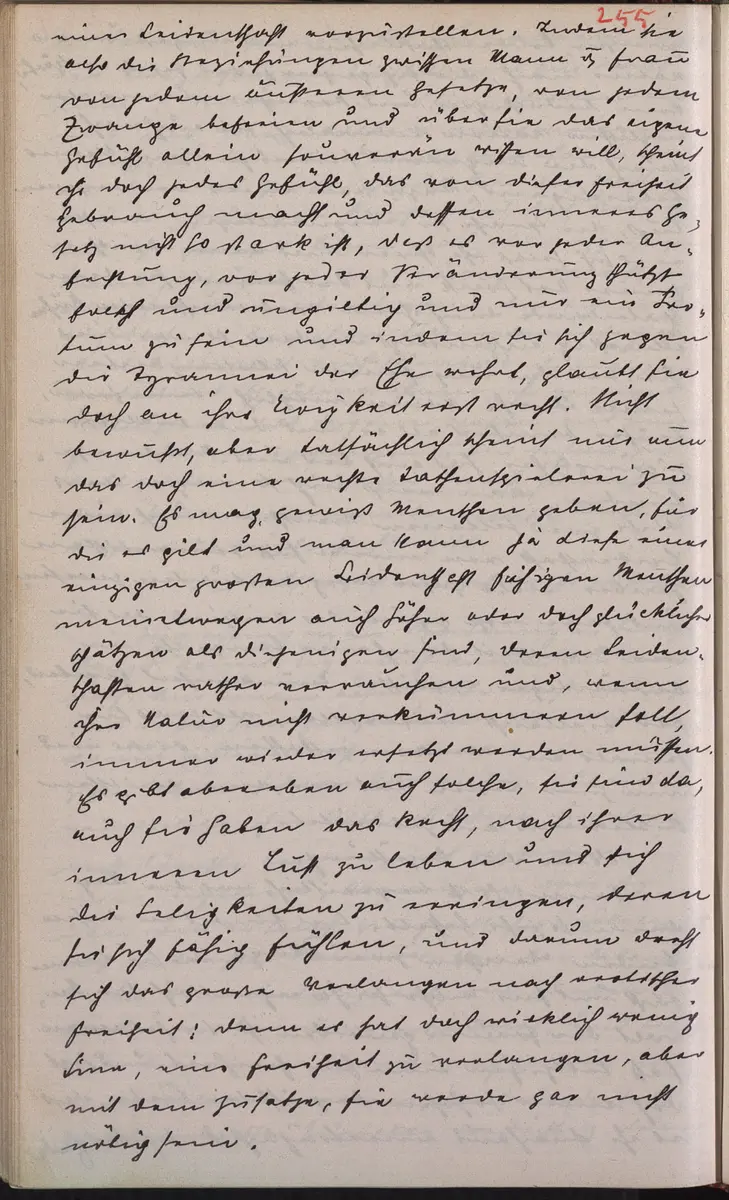 255
einer Leidenschaft vorzustellen. Indem sie
also die Beziehungen zwischen Mann u Frau
von jedem äußeren Gesetze, von jedem
Zwange befreien und über sie das eigene
Gefühl allein souverän wissen will, scheint
ihr doch jedes Gefühl, das von dieser Freiheit
Gebrauch macht und dessen inneres Ge-
setz nicht so stark ist, daß es vor jeder An-
fechtung, vor jeder Veränderung schützt
falsch und ungiltig und nur ein Irr-
tum zu sein und indem sie sich gegen
die Tyrannei der Ehe wehrt, glaubt sie
doch an ihre Ewigkeit erst recht. Nicht
bewußt, aber tatsächlich scheint mir nun
das doch eine rechte Taschenspielerei zu
sein. Es mag gewiß Menschen geben, für
die es gilt und man kann ja diese einer
einzigen großen Leidenschaft fähigen Menschen
meinetwegen auch höher oder doch glücklicher
schätzen als diejenigen sind, deren Leiden-
schaften rascher verrauchen und, wenn
ihre Natur nicht verkümmern soll,
immer wieder ersetzt werden müssen.
Es gibt aber eben auch solche, sie sind da,
auch sie haben das Recht, nach ihrer
inneren Lust zu leben und sich
die Seligkeiten zu erringen, deren
sie sich fähig fühlen, und darum dreht
sich das große Verlangen nach erotischer
Freiheit; denn es hat doch wirklich wenig
Sinn, eine Freiheit zu verlangen, aber
mit dem Zusatze, sie werde gar nicht
nötig sein.